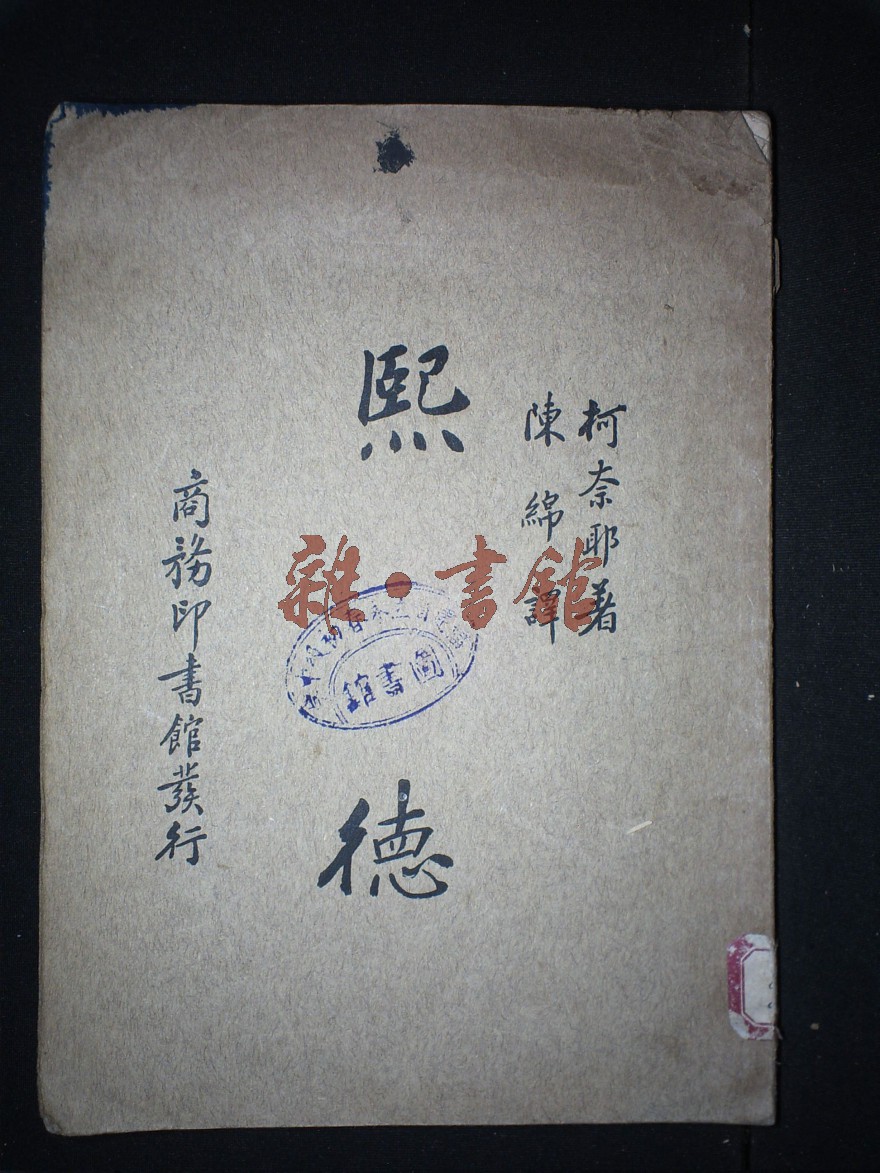 柯奈耶著
陳綿譯
熙德
商務印書館發行
雜·書館
圖書館